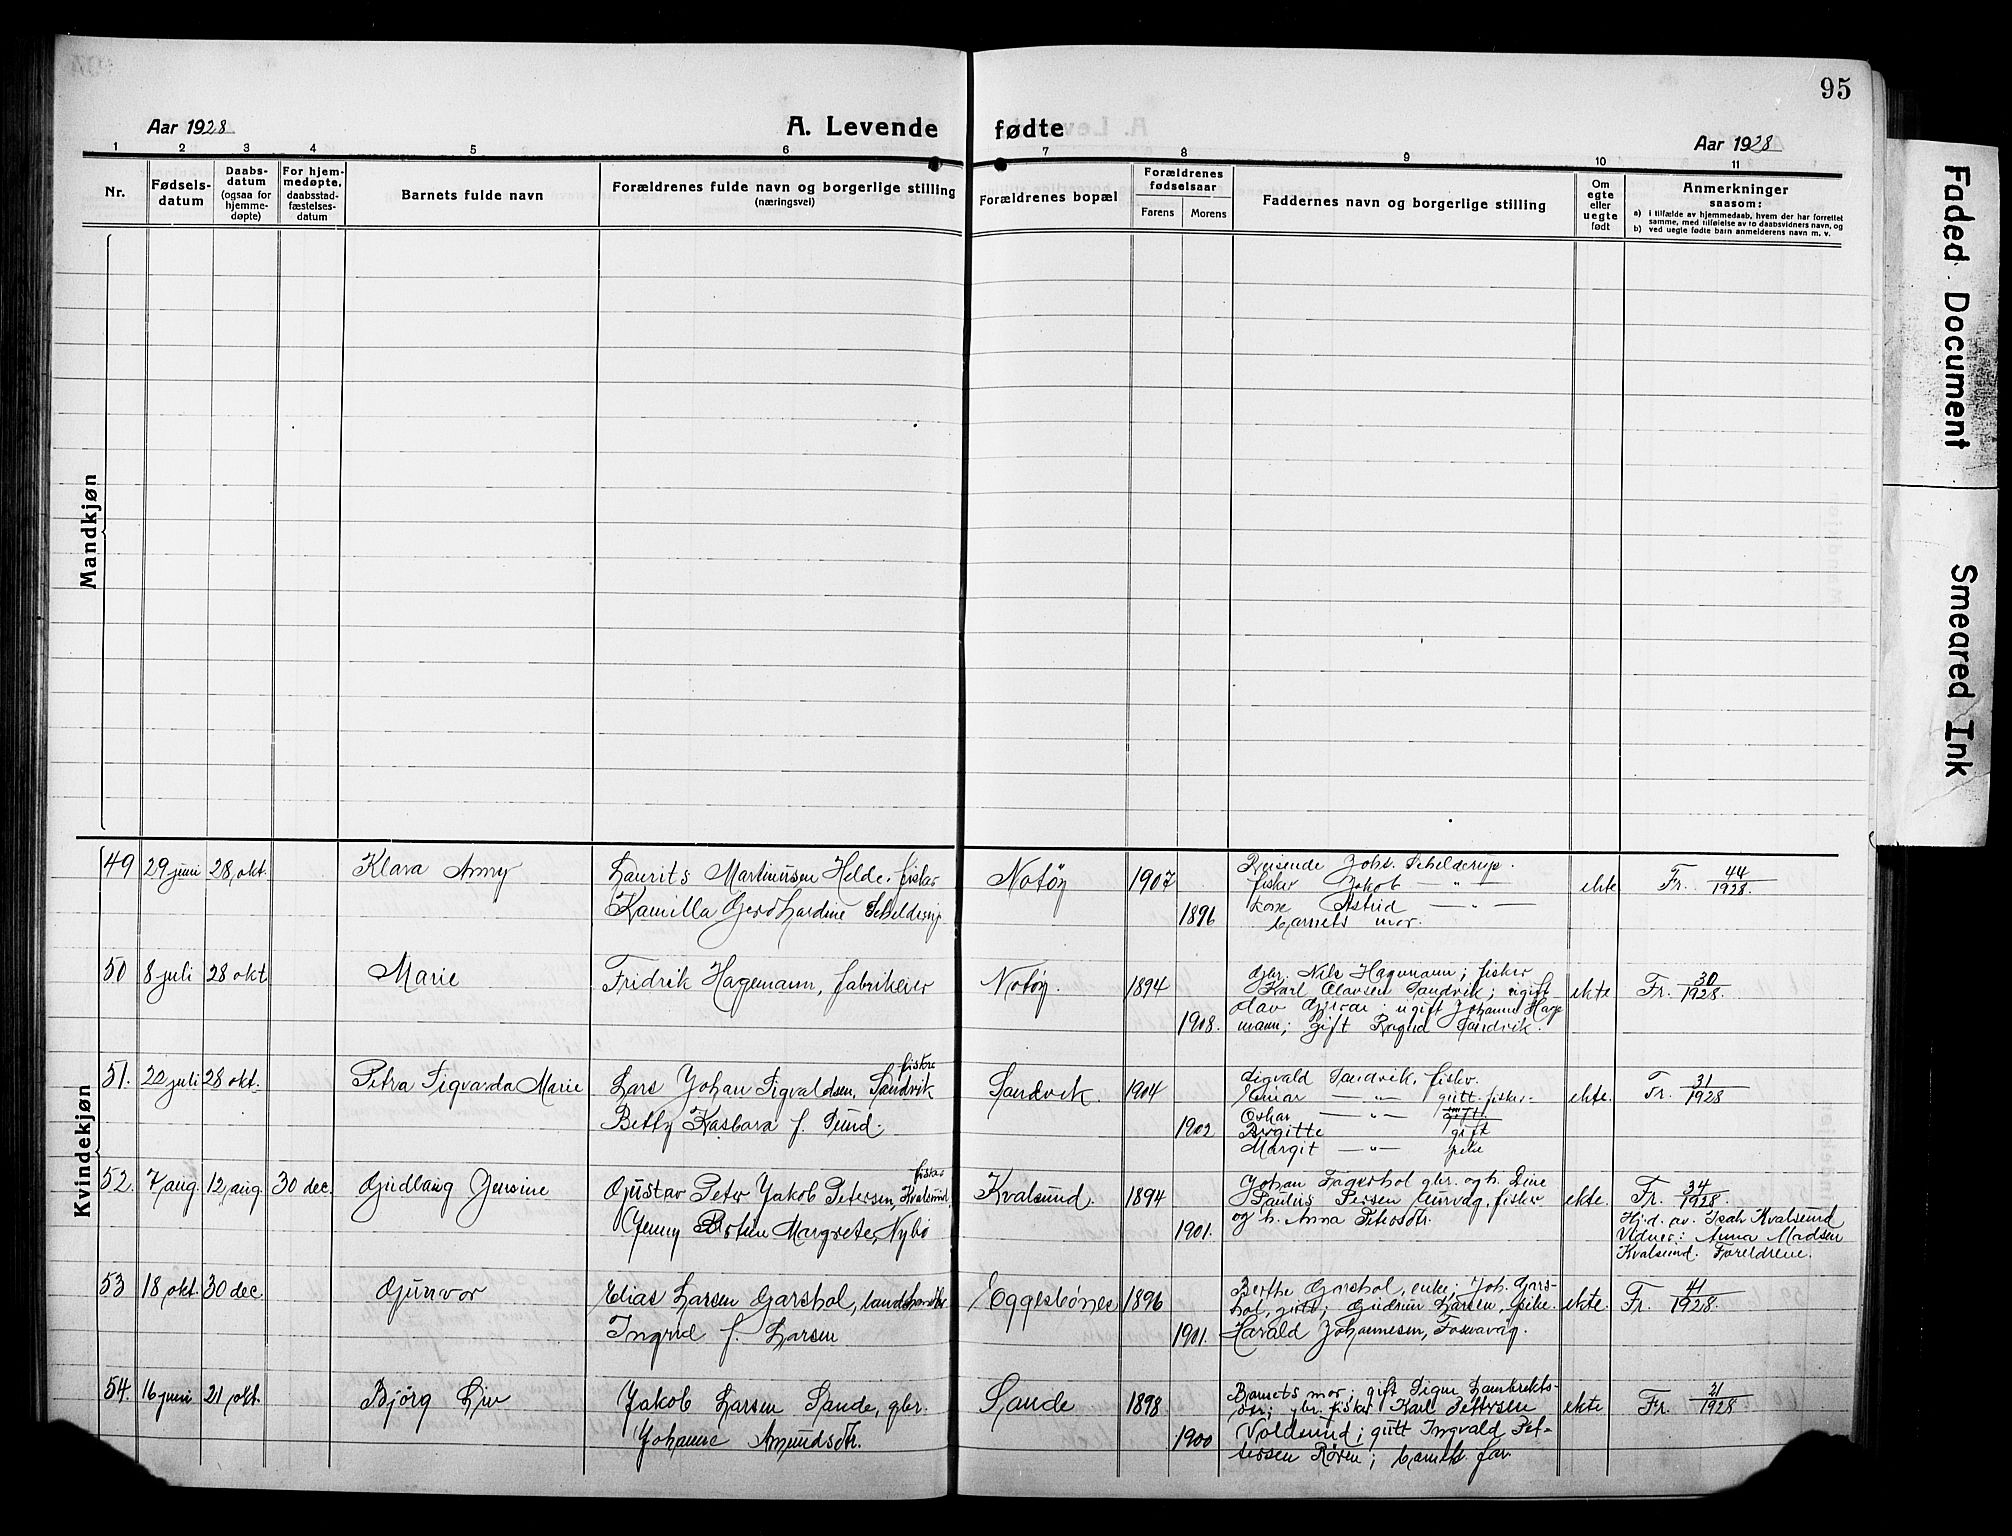 95
Aar 1928
A. Levende fødte
Aar 1928
1 2 3 4 5 6 7 8 9 10 11
Nr.
Fødsels-
datum
Daabs-
datum
(ogsaa for
hjemme-
døpte)
For hjem-
medøpte,
daabsstad-
fæstelses-
datum
Barnets fulde navn
Forældrenes fulde navn og borgerlige stilling
(næringsvei)
Forældrenes bopæl
Forældrenes
fødselsaar
Farens Morens
Faddernes navn og borgerlige stilling
Om
egte
eller
uegte
født
Anmerkninger
saasom:
a) i tilfælde av hjemmedaab, hvem der har forrettet
samme, med tilføielse av to daabsvidners navn, og
b) ved uegte fødte barn anmelderens navn m. v.
Mandkjøn
Kvindekjøn
49 29 juni 28, okt. Klara Anny
Laurits Martinusen Helde. fisker
Kamilla Gerdhardine Schelderup
Notøy 1907 1896
Reisende Johs. Schelderup.
fisker Jakob — " —
kone Astrid — " —
barnets mor.
ekte Fr. 44/1928.
50 8 juli 28 okt Marie
Fridrik Hagemann, fabrikeier
Notøy. 1894 1908.
Gbr. Nils Hagemann; fisker
Karl Olavsen Sandvik; ugift
Olav ugift Johanna Hage
mann; gift Ragna Sandvik.
ekte Fr. 30/1928.
51. 20 juli 28 okt. Petra Sigvarda Marie
fiskere
Lars Johan Sigvaldsen, Sandvik
Betty Kasbara f. Sund.
Sandvik. 1904 1902
Sigvald Sandvik, fisker.
Einar — " — gutt. fisker-
Oskar — " —
Birgitte gift
Margit — " — pike
ekte. Fr. 31/1928
52. 7 aug. 12, aug. 30 dec. Gudlaug Jensine
fisker
Gustav Peter Jakob Petersen, Kvalsund.
Jenny Margrete, Nybø
Kvalsund. 1894 1901.
Johan Fagerhol gbr. og h. Line
Paulus Persen Gurvåg, fisker
og h. Anna Petersdtr.
ekte. Fr. 34/1928.
Hj.d. av. Kvalsund
Vidner: Anna Madsen
Kvalsund. Foreldrene.
53 18 okt. 30 dec. Gunvor
Elias Larsen Garshol, landhandler
Ingrid f. Larsen
Eggesbønes 1896 1901.
Berthe Garshol, enke; Joh. Gars-
hol, gutt; Gudrun Larsen, pike
Harald Johannesen, Fosnavåg.
ekte. Fr. 41/1928.
54. 16 juni 21 okt. Bjørg Liv
Jakob Larsen Sande, gbr.
Johanne Amundsdtr.
Sande 1898 1900
Barnets mor; gift Signe Lambrekts-
dtr; gbr. fisker Karl Pettersen
Voldsund; gutt Ingvald Pet-
tersen Røren; barnets far
ekte Fr. 21/1928
Faded Document
Smeared Ink